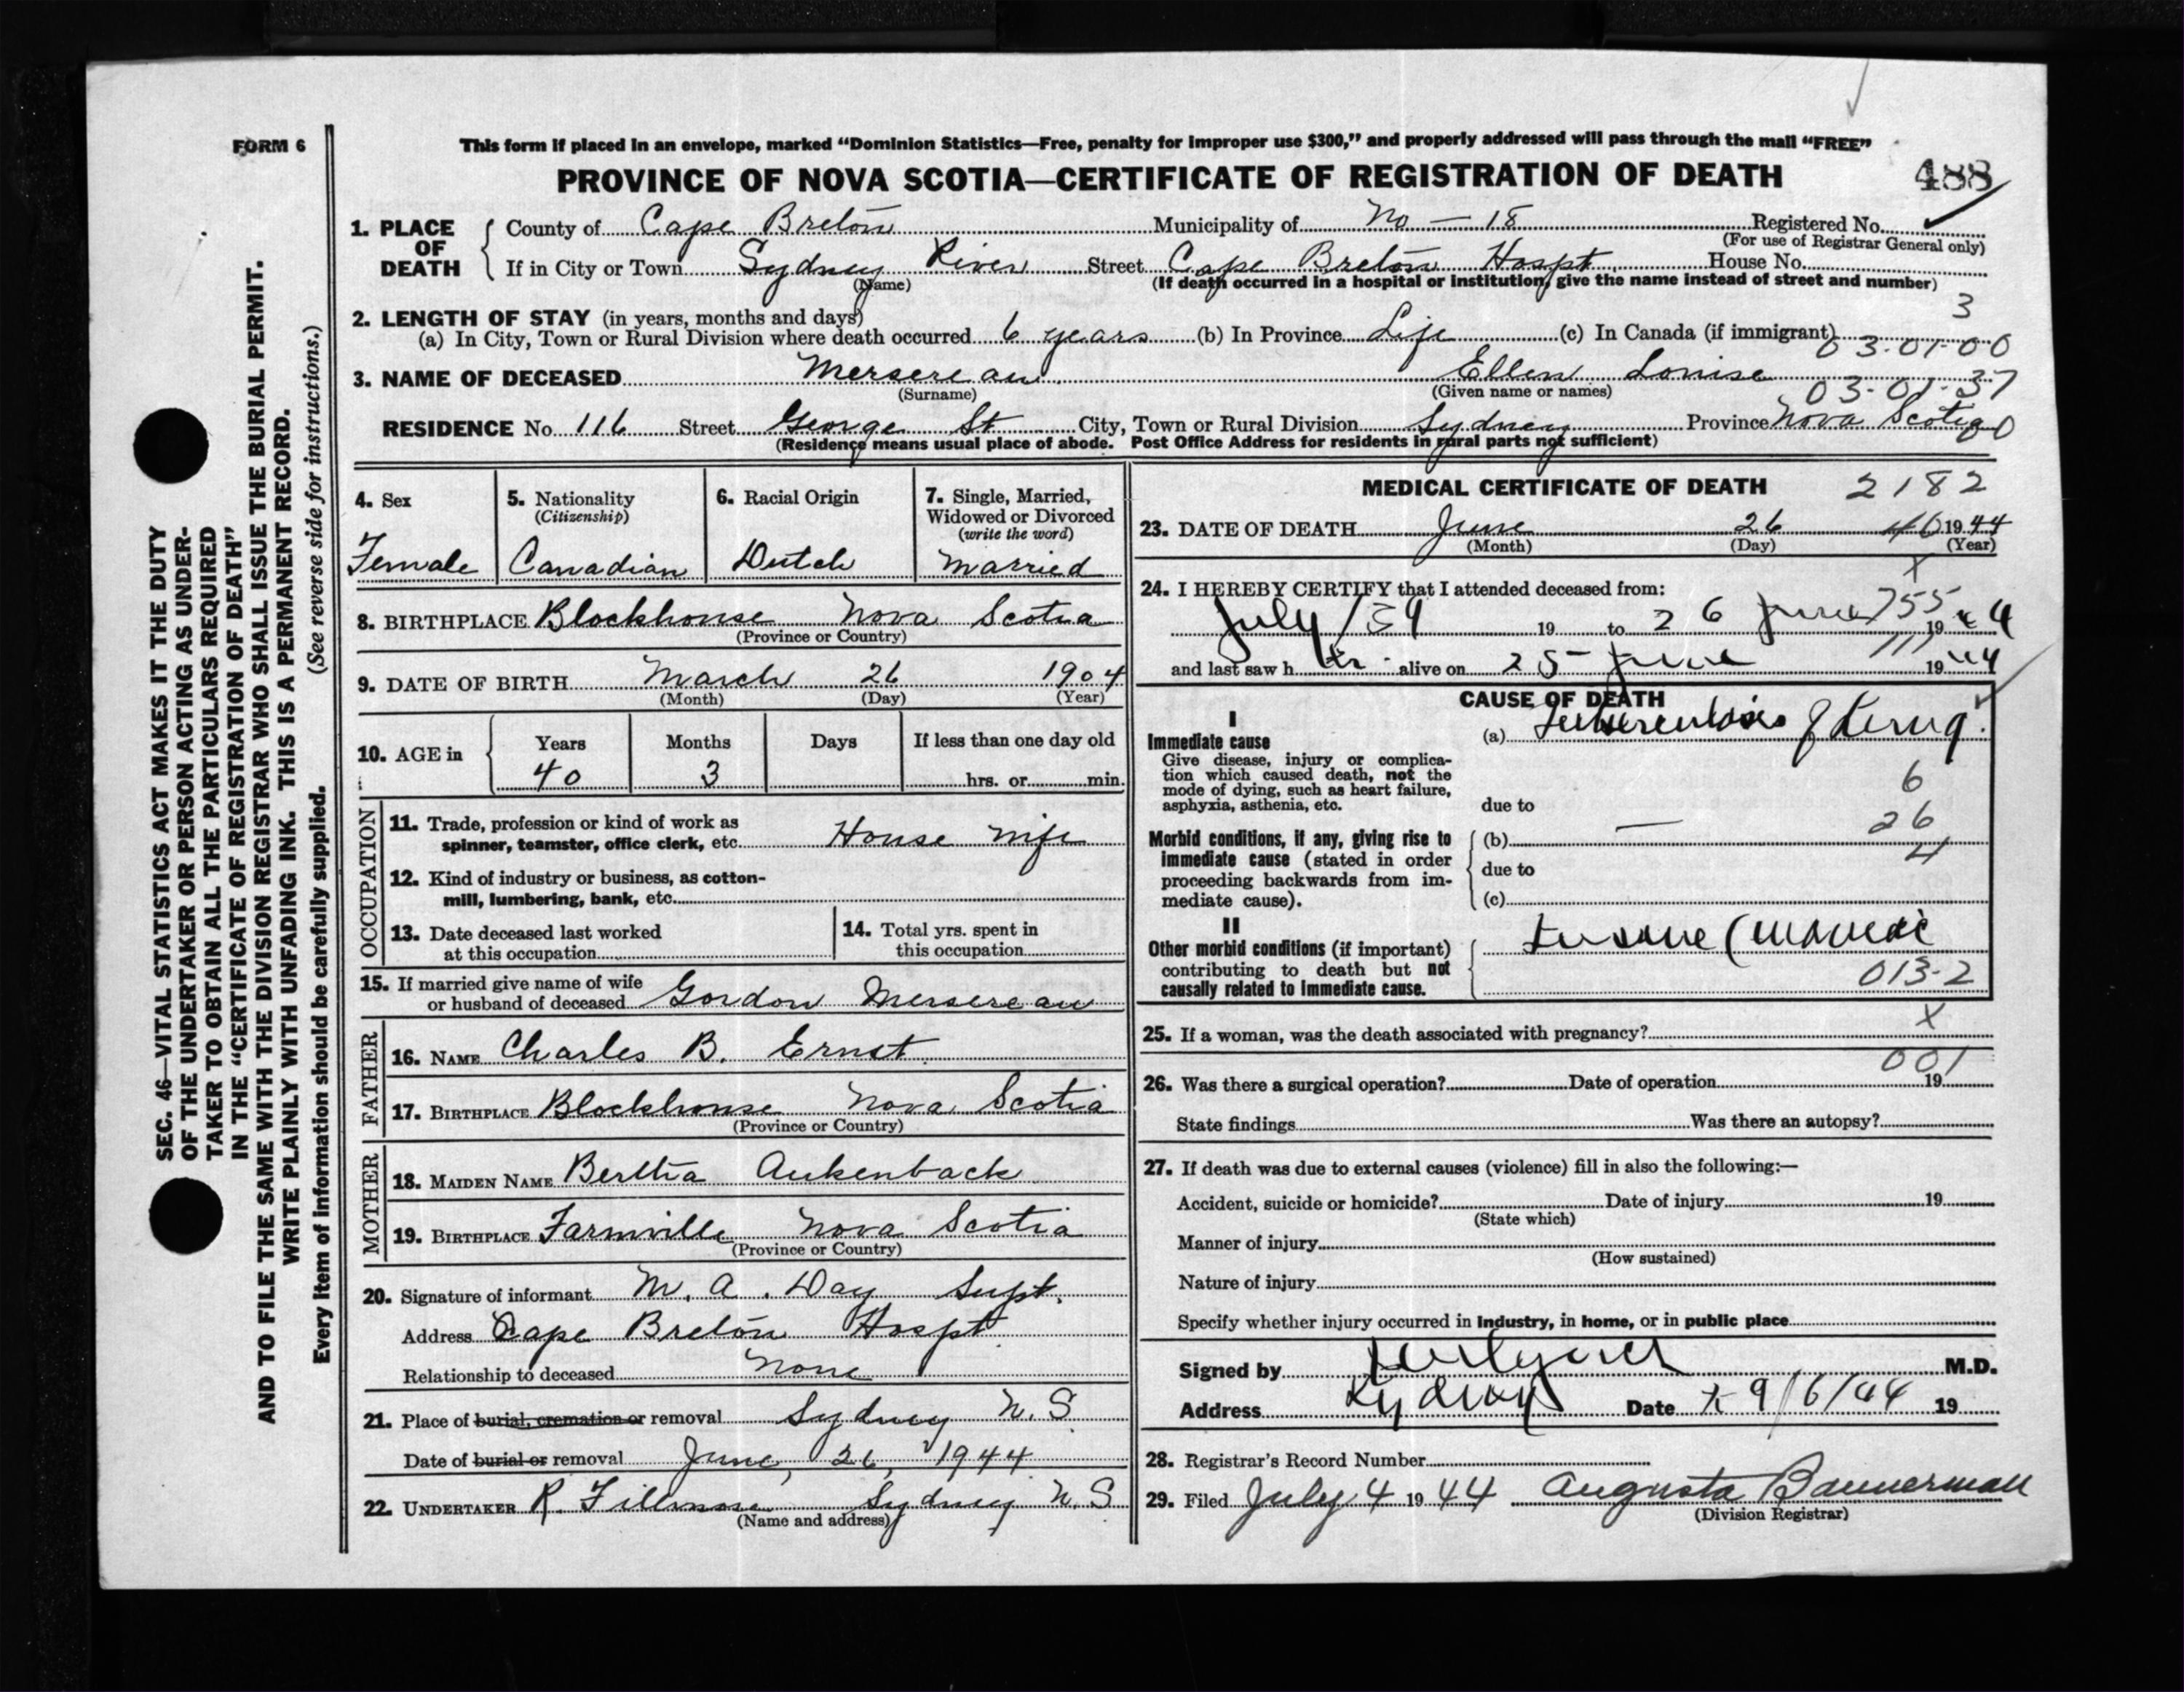 FORM 6
This form if placed in an envelope, marked “Dominion Statistics—Free, penalty for improper use $300,” and properly addressed will pass through the mail “FREE”
PROVINCE OF NOVA SCOTIA—CERTIFICATE OF REGISTRATION OF DEATH
488
1. PLACE OF DEATH
County of Cape Breton Municipality of No — 18 Registered No.
(For use of Registrar General only)
If in City or Town Sydney River Street Cape Breton Hospt. House No.
(Name) (If death occurred in a hospital or institution, give the name instead of street and number)
3
2. LENGTH OF STAY (in years, months and days)
(a) In City, Town or Rural Division where death occurred 6 years (b) In Province Life (c) In Canada (if immigrant)
03-01-00
3. NAME OF DECEASED Mersereau Ellen Louise
(Surname) (Given name or names)
03-01-37
RESIDENCE No. 116 Street George St City, Town or Rural Division Sydney Province Nova Scotia
(Residence means usual place of abode. Post Office Address for residents in rural parts not sufficient)
4. Sex
Female
5. Nationality
(Citizenship)
Canadian
6. Racial Origin
Dutch
7. Single, Married,
Widowed or Divorced
(write the word)
Married
8. BIRTHPLACE Blockhouse Nova Scotia
(Province or Country)
9. DATE OF BIRTH March 26 1904
(Month) (Day) (Year)
10. AGE in
Years Months Days If less than one day old
40 3 hrs. or min.
OCCUPATION
11. Trade, profession or kind of work as
spinner, teamster, office clerk, etc. House wife
12. Kind of industry or business, as cotton-
mill, lumbering, bank, etc.
13. Date deceased last worked
at this occupation
14. Total yrs. spent in
this occupation
15. If married give name of wife
or husband of deceased Gordon Mersereau
FATHER
16. NAME Charles B. Ernst
17. BIRTHPLACE Blockhouse Nova Scotia
(Province or Country)
MOTHER
18. MAIDEN NAME Bertha Aukenback
19. BIRTHPLACE Farmville Nova Scotia
(Province or Country)
20. Signature of informant M. A. Day Supt.
Address Cape Breton Hospt.
Relationship to deceased None
21. Place of burial, cremation or removal Sydney N. S.
Date of burial or removal June, 26, 1944
22. UNDERTAKER R. Fillmore Sydney N. S.
(Name and address)
MEDICAL CERTIFICATE OF DEATH
2182
23. DATE OF DEATH June 26 1944
(Month) (Day) (Year)
x
24. I HEREBY CERTIFY that I attended deceased from:
755
July / 39 19 to 26 June 19 44
111
and last saw her alive on 25 June 19 44
CAUSE OF DEATH
I
Immediate cause
Give disease, injury or complica-
tion which caused death, not the
mode of dying, such as heart failure,
asphyxia, asthenia, etc.
(a) Tuberculosis of
6
due to
26
Morbid conditions, if any, giving rise to
immediate cause (stated in order
proceeding backwards from im-
mediate cause).
(b) —
4
due to
(c)
II
Other morbid conditions (if important)
contributing to death but not
causally related to immediate cause.
Insane (
013-2
x
25. If a woman, was the death associated with pregnancy?
001
26. Was there a surgical operation? Date of operation 19
State findings Was there an autopsy?
27. If death was due to external causes (violence) fill in also the following:—
Accident, suicide or homicide? Date of injury 19
(State which)
Manner of injury
(How sustained)
Nature of injury
Specify whether injury occurred in industry, in home, or in public place
Signed by M.D.
Address Sydney Date 29/6/44 19
28. Registrar's Record Number
29. Filed July 4 19 44 Augusta Bannerman
(Division Registrar)
SEC. 46—VITAL STATISTICS ACT MAKES IT THE DUTY
OF THE UNDERTAKER OR PERSON ACTING AS UNDER-
TAKER TO OBTAIN ALL THE PARTICULARS REQUIRED
IN THE “CERTIFICATE OF REGISTRATION OF DEATH”
AND TO FILE THE SAME WITH THE DIVISION REGISTRAR WHO SHALL ISSUE THE BURIAL PERMIT.
WRITE PLAINLY WITH UNFADING INK. THIS IS A PERMANENT RECORD.
Every item of information should be carefully supplied. (See reverse side for instructions.)